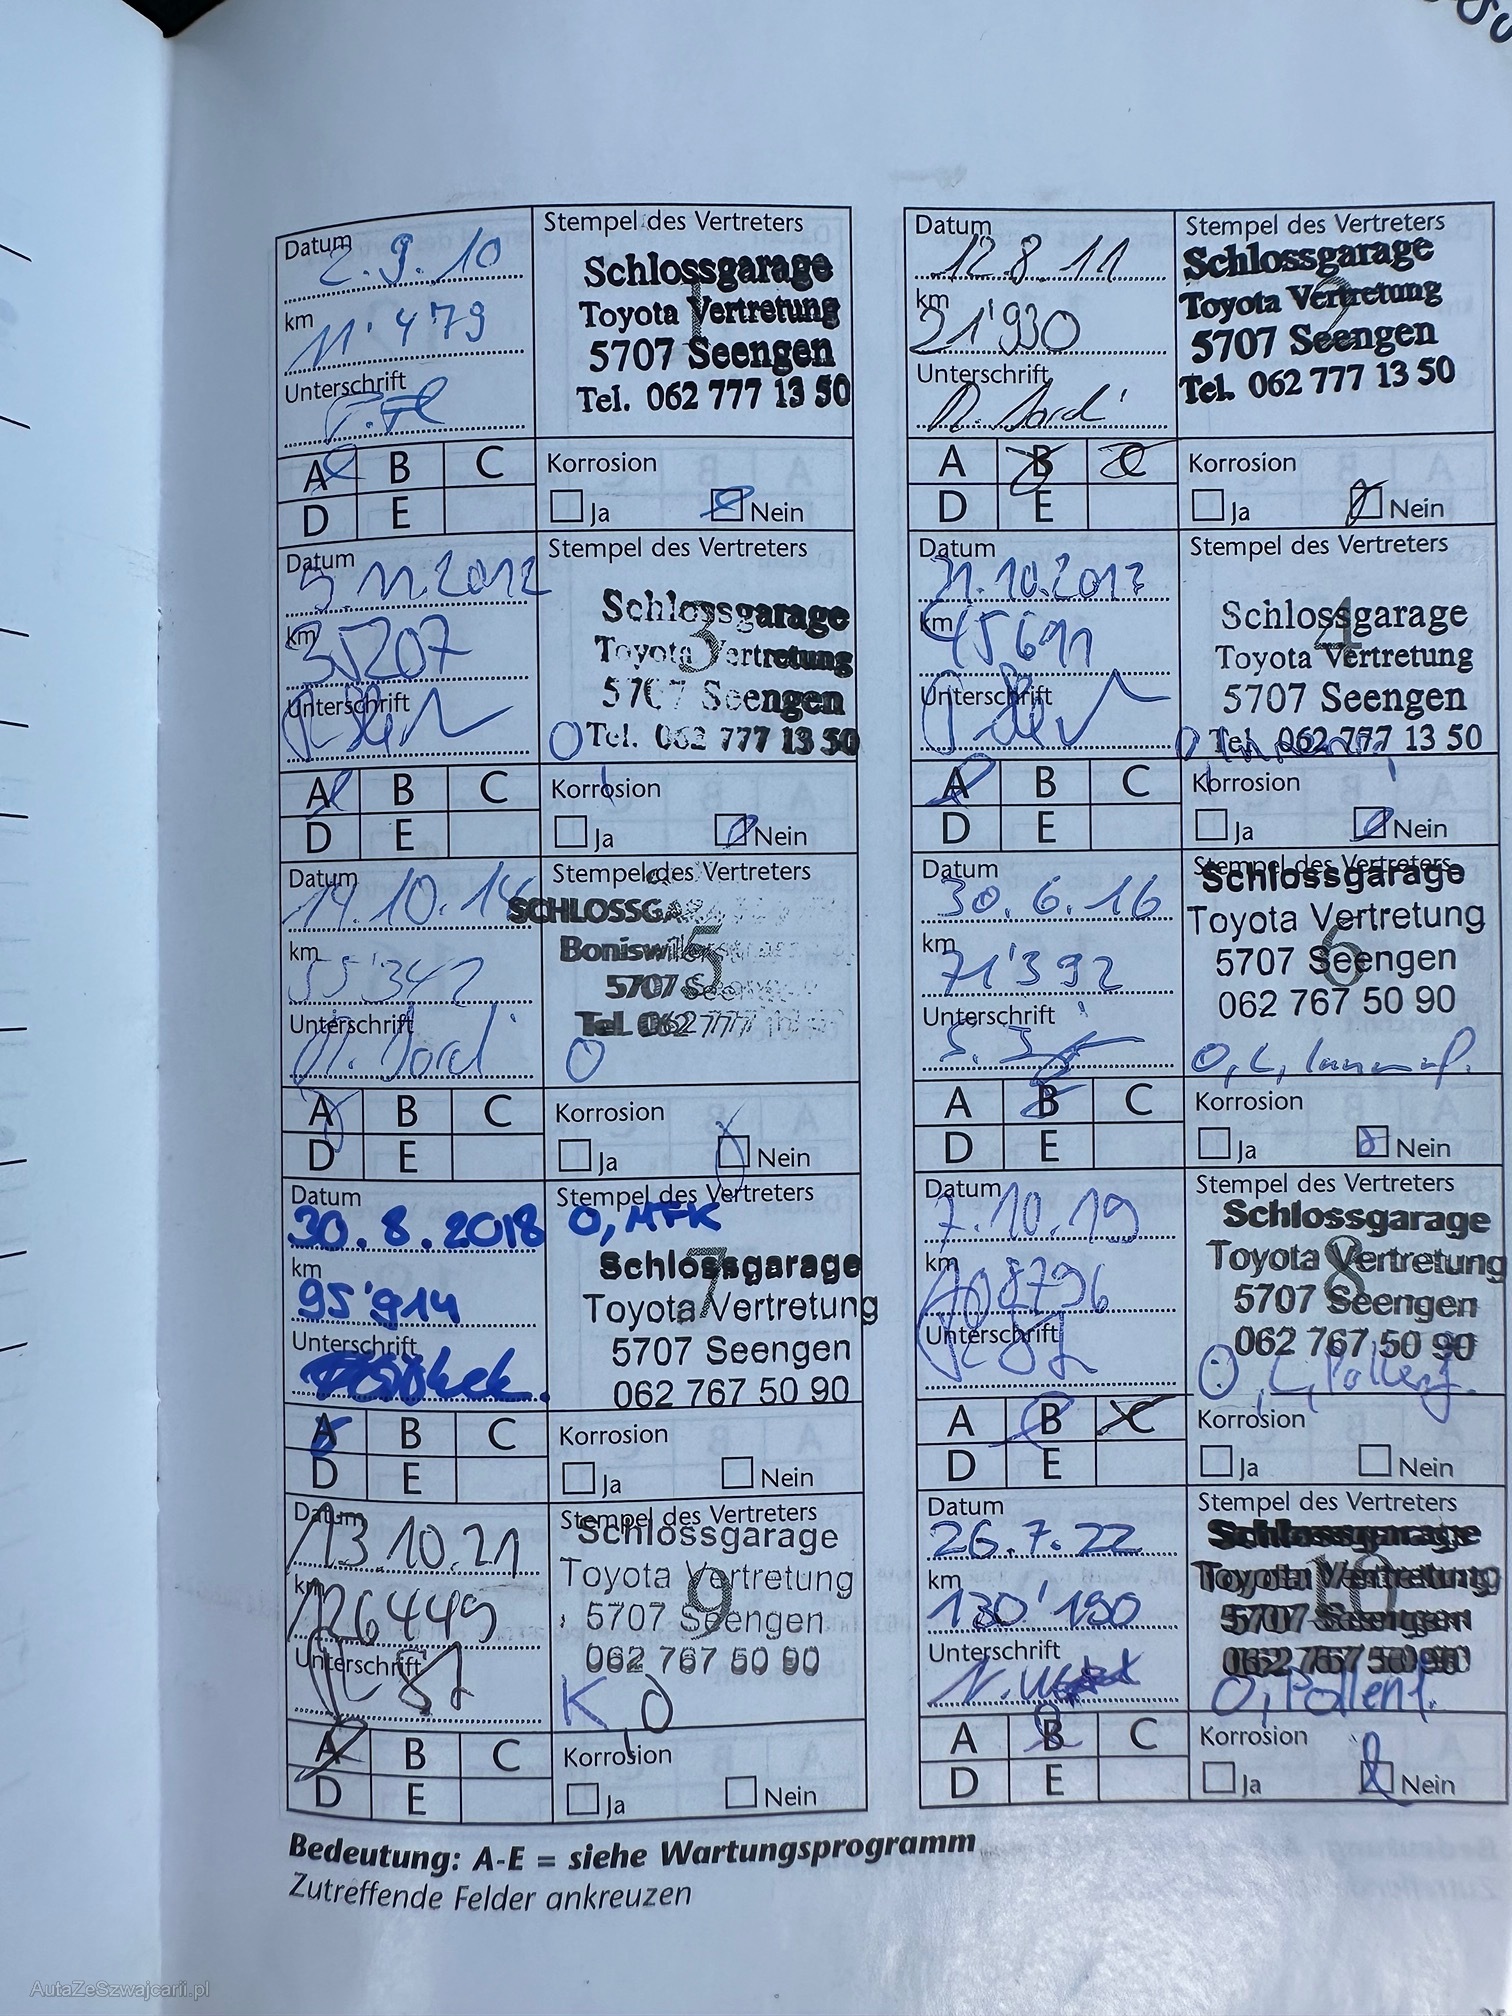 Datum 2.9.10
km 11'479
Unterschrift
Stempel des Vertreters
Schlossgarage
Toyota Vertretung
5707 Seengen
Tel. 062 777 13 50
1
A B C
D E
Korrosion
Ja Nein
Datum 12.8.11
km 21'930
Unterschrift
Stempel des Vertreters
Schlossgarage
Toyota Vertretung
5707 Seengen
Tel. 062 777 13 50
2
A B C
D E
Korrosion
Ja Nein
Datum 5.11.2012
km 35207
Unterschrift
Stempel des Vertreters
Schlossgarage
Toyota Vertretung
5707 Seengen
O Tel. 062 777 13 50
3
A B C
D E
Korrosion
Ja Nein
Datum 31.10.2013
km 45691
Unterschrift
Stempel des Vertreters
Schlossgarage
Toyota Vertretung
5707 Seengen
Tel. 062 777 13 50
4
A B C
D E
Korrosion
Ja Nein
Datum 14.10.14
km 55'342
Unterschrift
Stempel des Vertreters
5707
Tel. 062 777
5
O
A B C
D E
Korrosion
Ja Nein
Datum 30.6.16
km 71'392
Unterschrift
Stempel des Vertreters
Schlossgarage
Toyota Vertretung
5707 Seengen
062 767 50 90
6
A B C
D E
Korrosion
Ja Nein
Datum 30.8.2018
km 95'914
Unterschrift
Stempel des Vertreters
O, MFK
Schlossgarage
Toyota Vertretung
5707 Seengen
062 767 50 90
7
A B C
D E
Korrosion
Ja Nein
Datum 7.10.19
km 108796
Unterschrift
Stempel des Vertreters
Schlossgarage
Toyota Vertretung
5707 Seengen
062 767 50 90
8
O, L, Pollenf.
A B C
D E
Korrosion
Ja Nein
Datum 13.10.21
km 126449
Unterschrift
Stempel des Vertreters
Schlossgarage
Toyota Vertretung
5707 Seengen
062 767 50 90
9
K O
A B C
D E
Korrosion
Ja Nein
Datum 26.7.22
km 130'190
Unterschrift
Stempel des Vertreters
Schlossgarage
Toyota Vertretung
5707 Seengen
062 767 50 90
10
O, Pollenf.
A B C
D E
Korrosion
Ja Nein
Bedeutung: A-E = siehe Wartungsprogramm
Zutreffende Felder ankreuzen
AutaZeSzwajcarii.pl